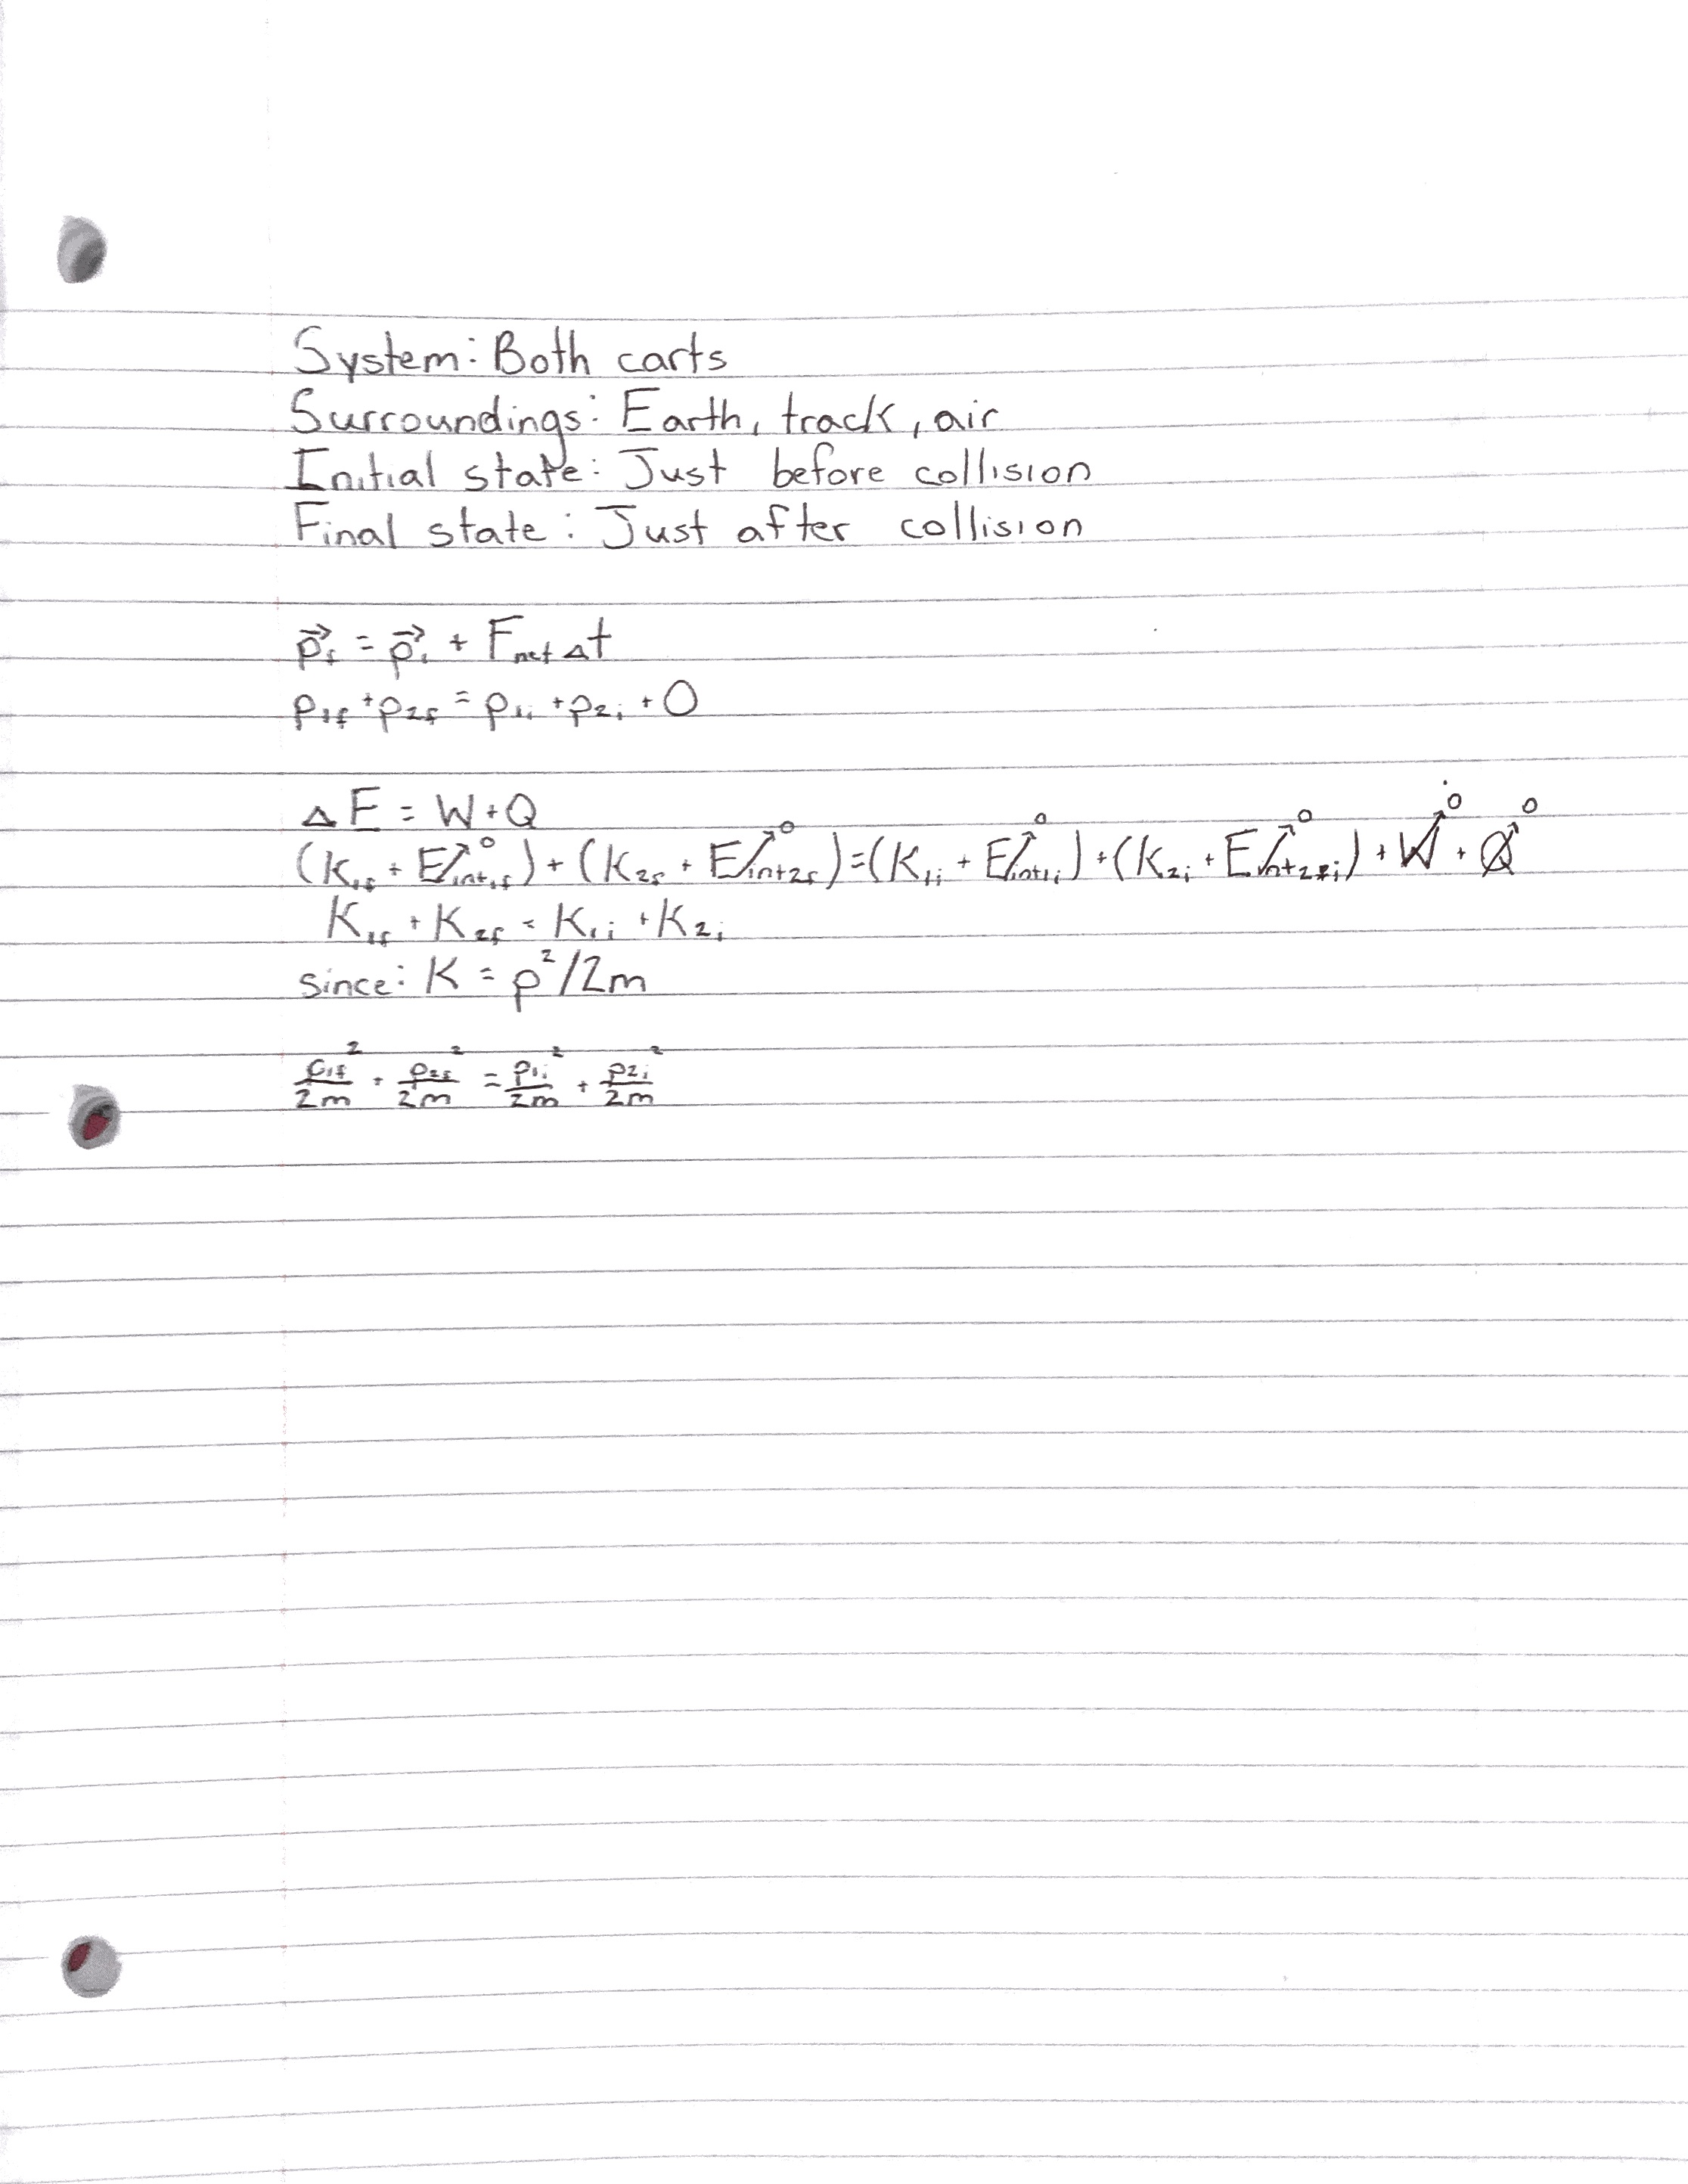 System: Both carts
Surroundings: Earth, track, air
Initial state: Just before collision
Final state: Just after collision
p⃗_f = p⃗_i + F_net Δt
p_1f + p_2f = p_1i + p_2i + 0
ΔE = W + Q
(K_1f + E_int1f→0) + (K_2f + E_int2f→0) = (K_1i + E_int1i→0) + (K_2i + E_int2i→0) + W→0 + Q→0
K_1f + K_2f = K_1i + K_2i
since: K = p²/2m
p_1f²/2m + p_2f²/2m = p_1i²/2m + p_2i²/2m